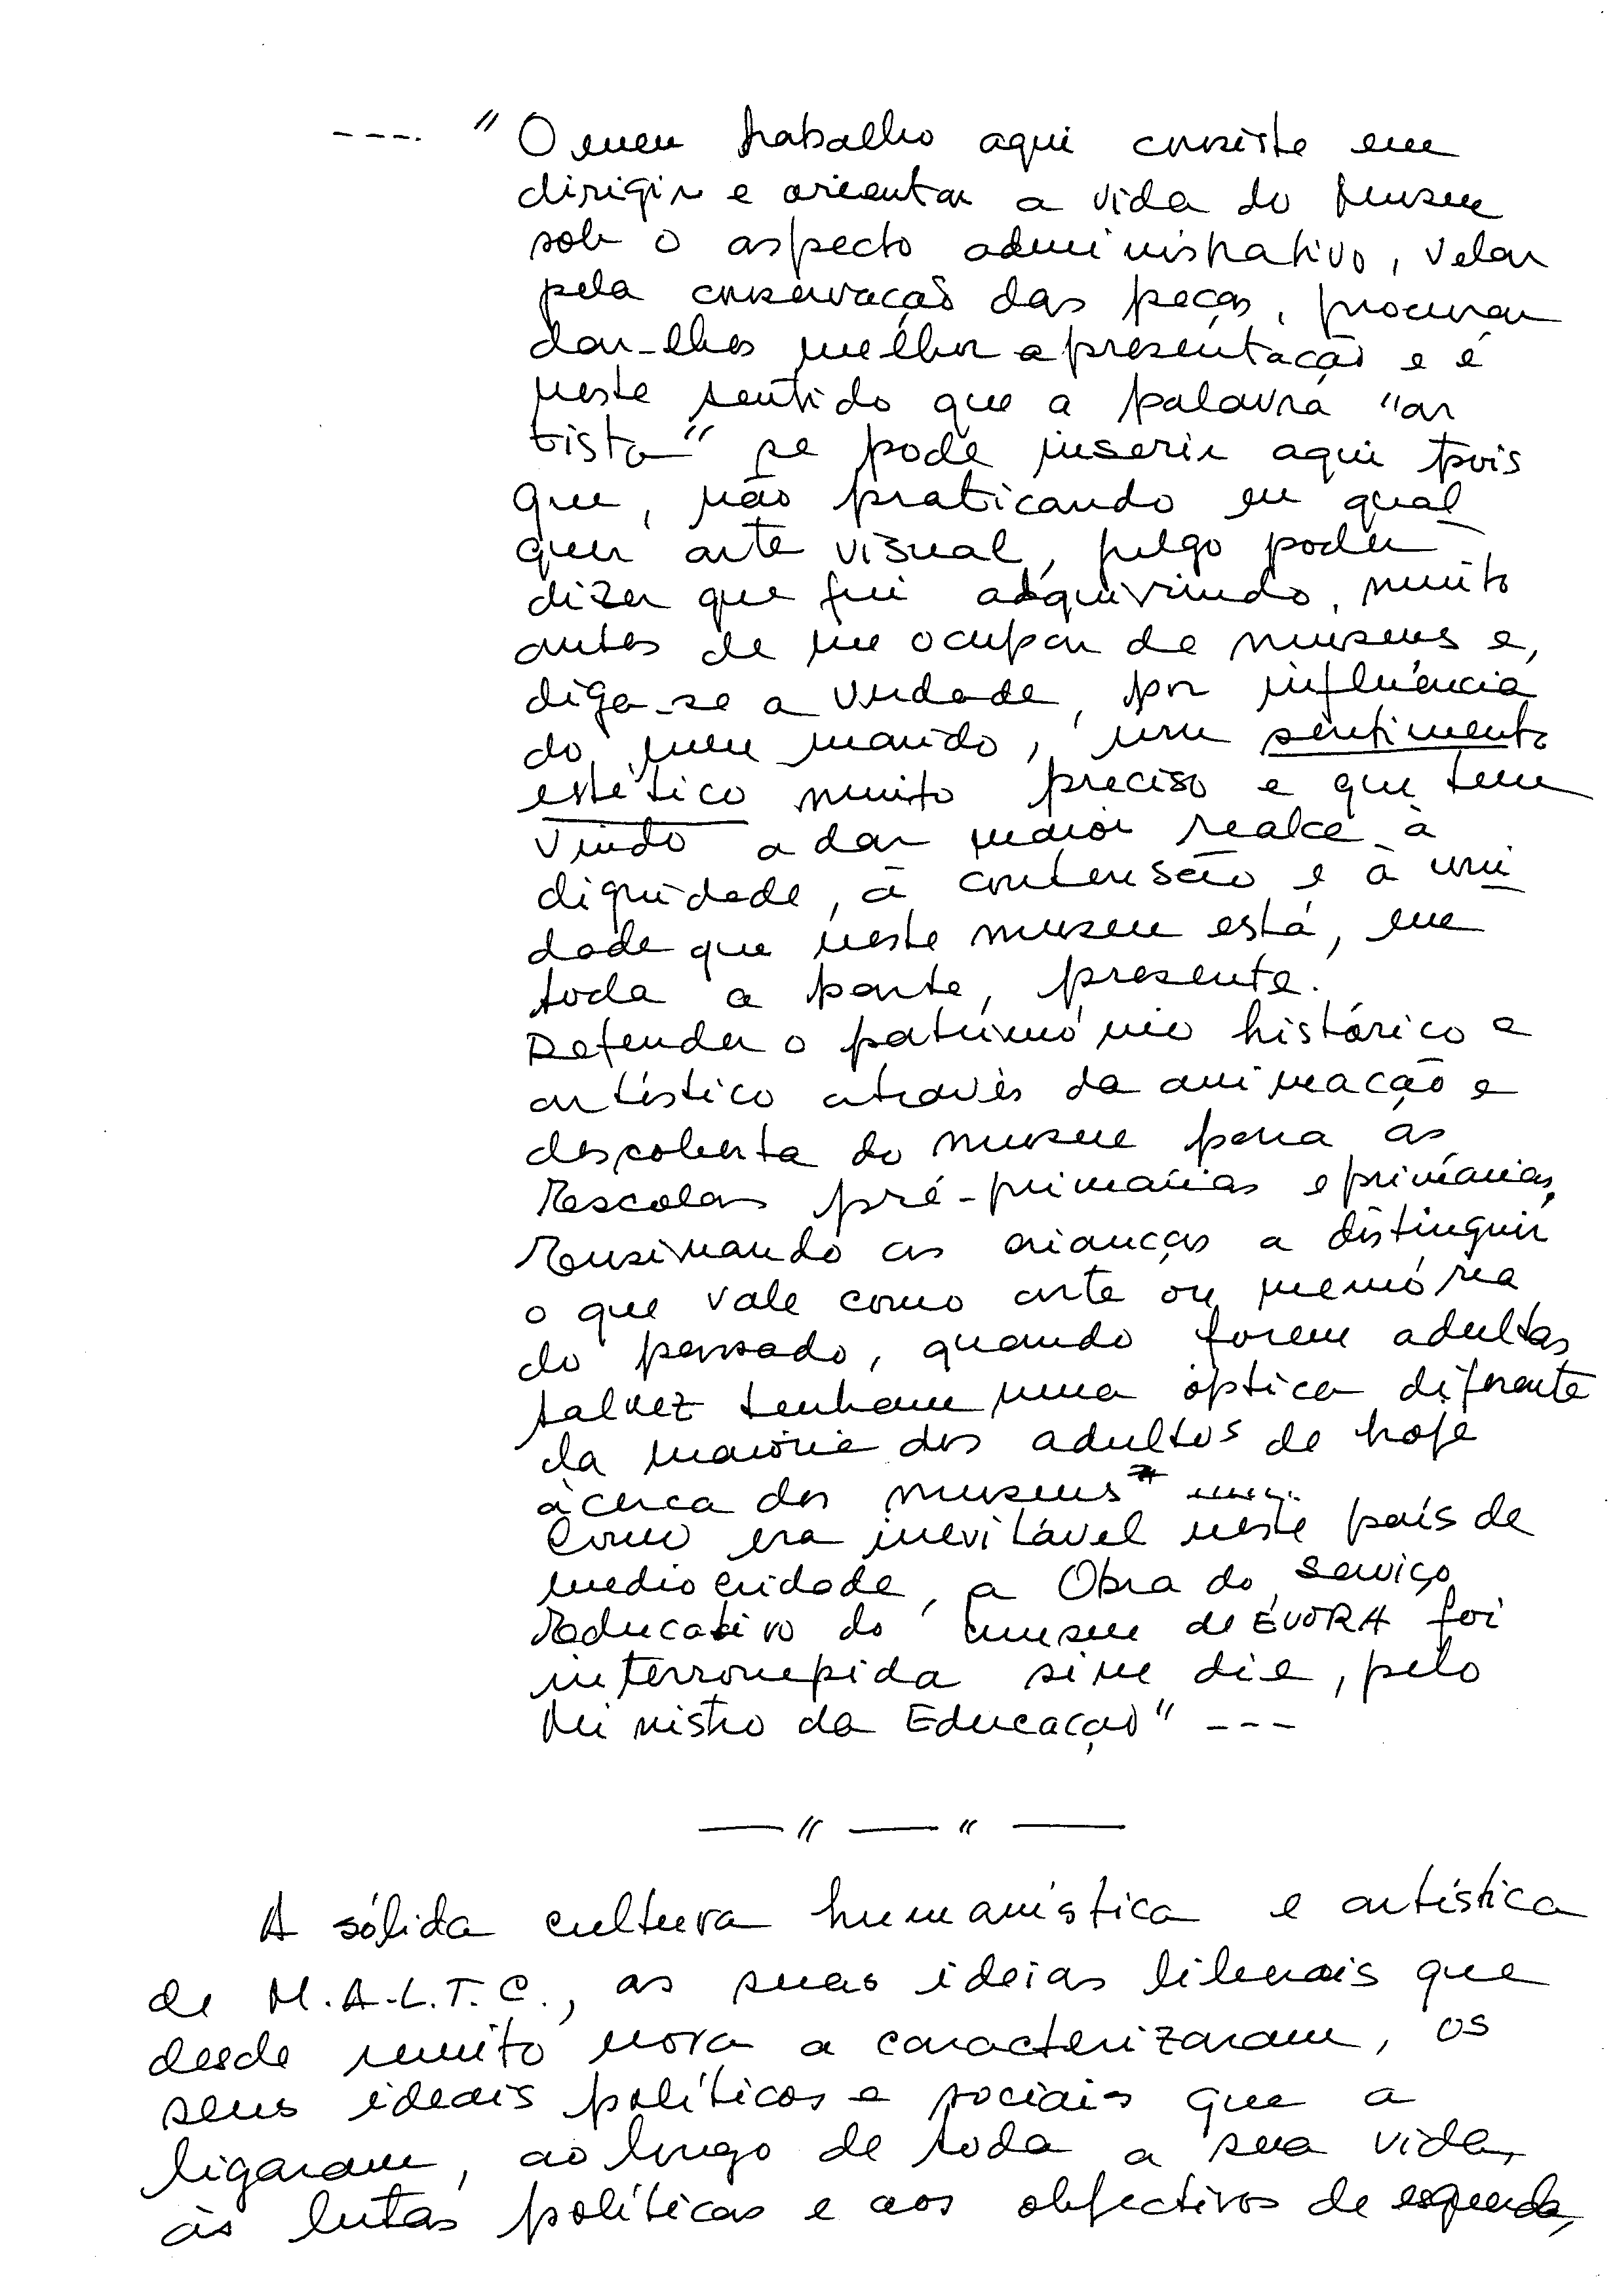 ----. "O meu trabalho aqui consiste em
dirigir e orientar a vida do Museu
sob o aspecto administrativo, velar
pela conservação das peças, procurar
dar-lhes melhor apresentação e é
neste sentido que a palavra "ar
tista" se pode inserir aqui pois
que, não praticando eu qual
quer arte visual, julgo poder
dizer que fui adquirindo, muito
antes de me ocupar de museus e,
diga-se a verdade, por influência
do meu marido, um sentimento
estético muito preciso e que tem
vindo a dar maior realce à
dignidade, à contensão e à uni
dade que neste museu está, em
toda a parte, presente.
Defender o património histórico e
artístico através da animação e
descoberta do museu para as
Escolas pré-primárias e primárias,
Ensinando as crianças a distinguir
o que vale como arte ou memória
do passado, quando forem adultas
talvez tenham uma óptica diferente
da maioria dos adultos de hoje
àcerca dos museus" ......
Como era inevitável neste país de
mediocridade, a Obra do Serviço
Educativo do museu de ÉVORA foi
interrompida sine die, pelo
Ministro da Educação" ---
— " — " —
A sólida cultura humanística e artística
de M.A.L.T.C., as suas ideias liberais que
desde muito nova a caracterizaram, os
seus ideais políticos e sociais que a
ligaram, ao longo de toda a sua vida,
às lutas políticas e aos objectivos de esquerda,